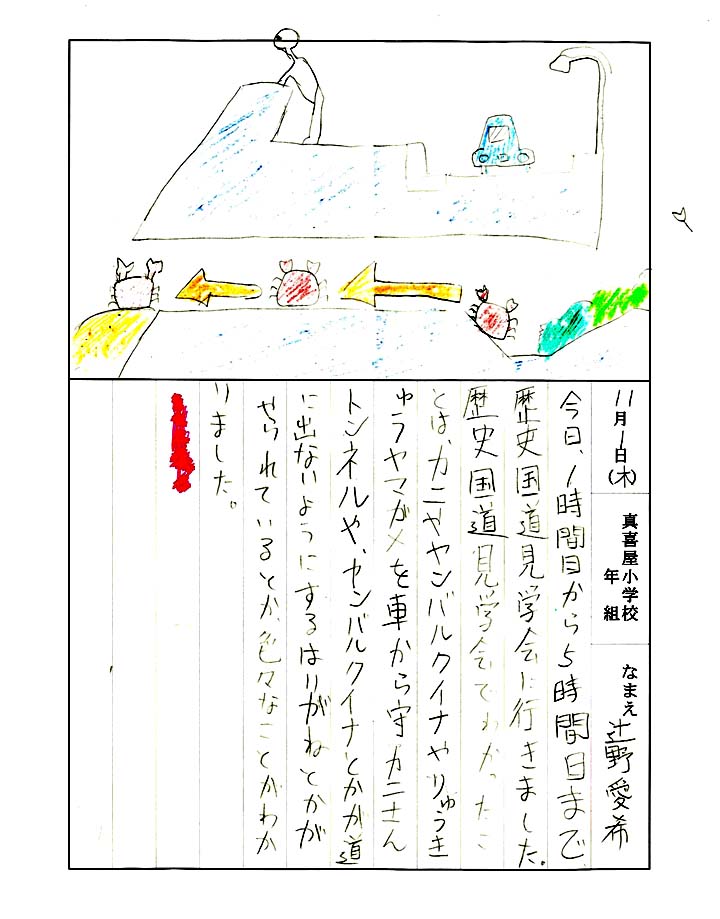 11月1日(木)
真喜屋小学校
年 組
なまえ 辻野愛希
今日、1時間目から5時間目まで
歴史国道見学会に行きました。
歴史国道見学会でわかったこ
とは、カニやヤンバルクイナやりゅうき
ゅうヤマガメを車から守カニさん
トンネルや、ヤンバルクイナとかが道
に出ないようにするはりがねとかが
やられているとか色々なことがわか
りました。